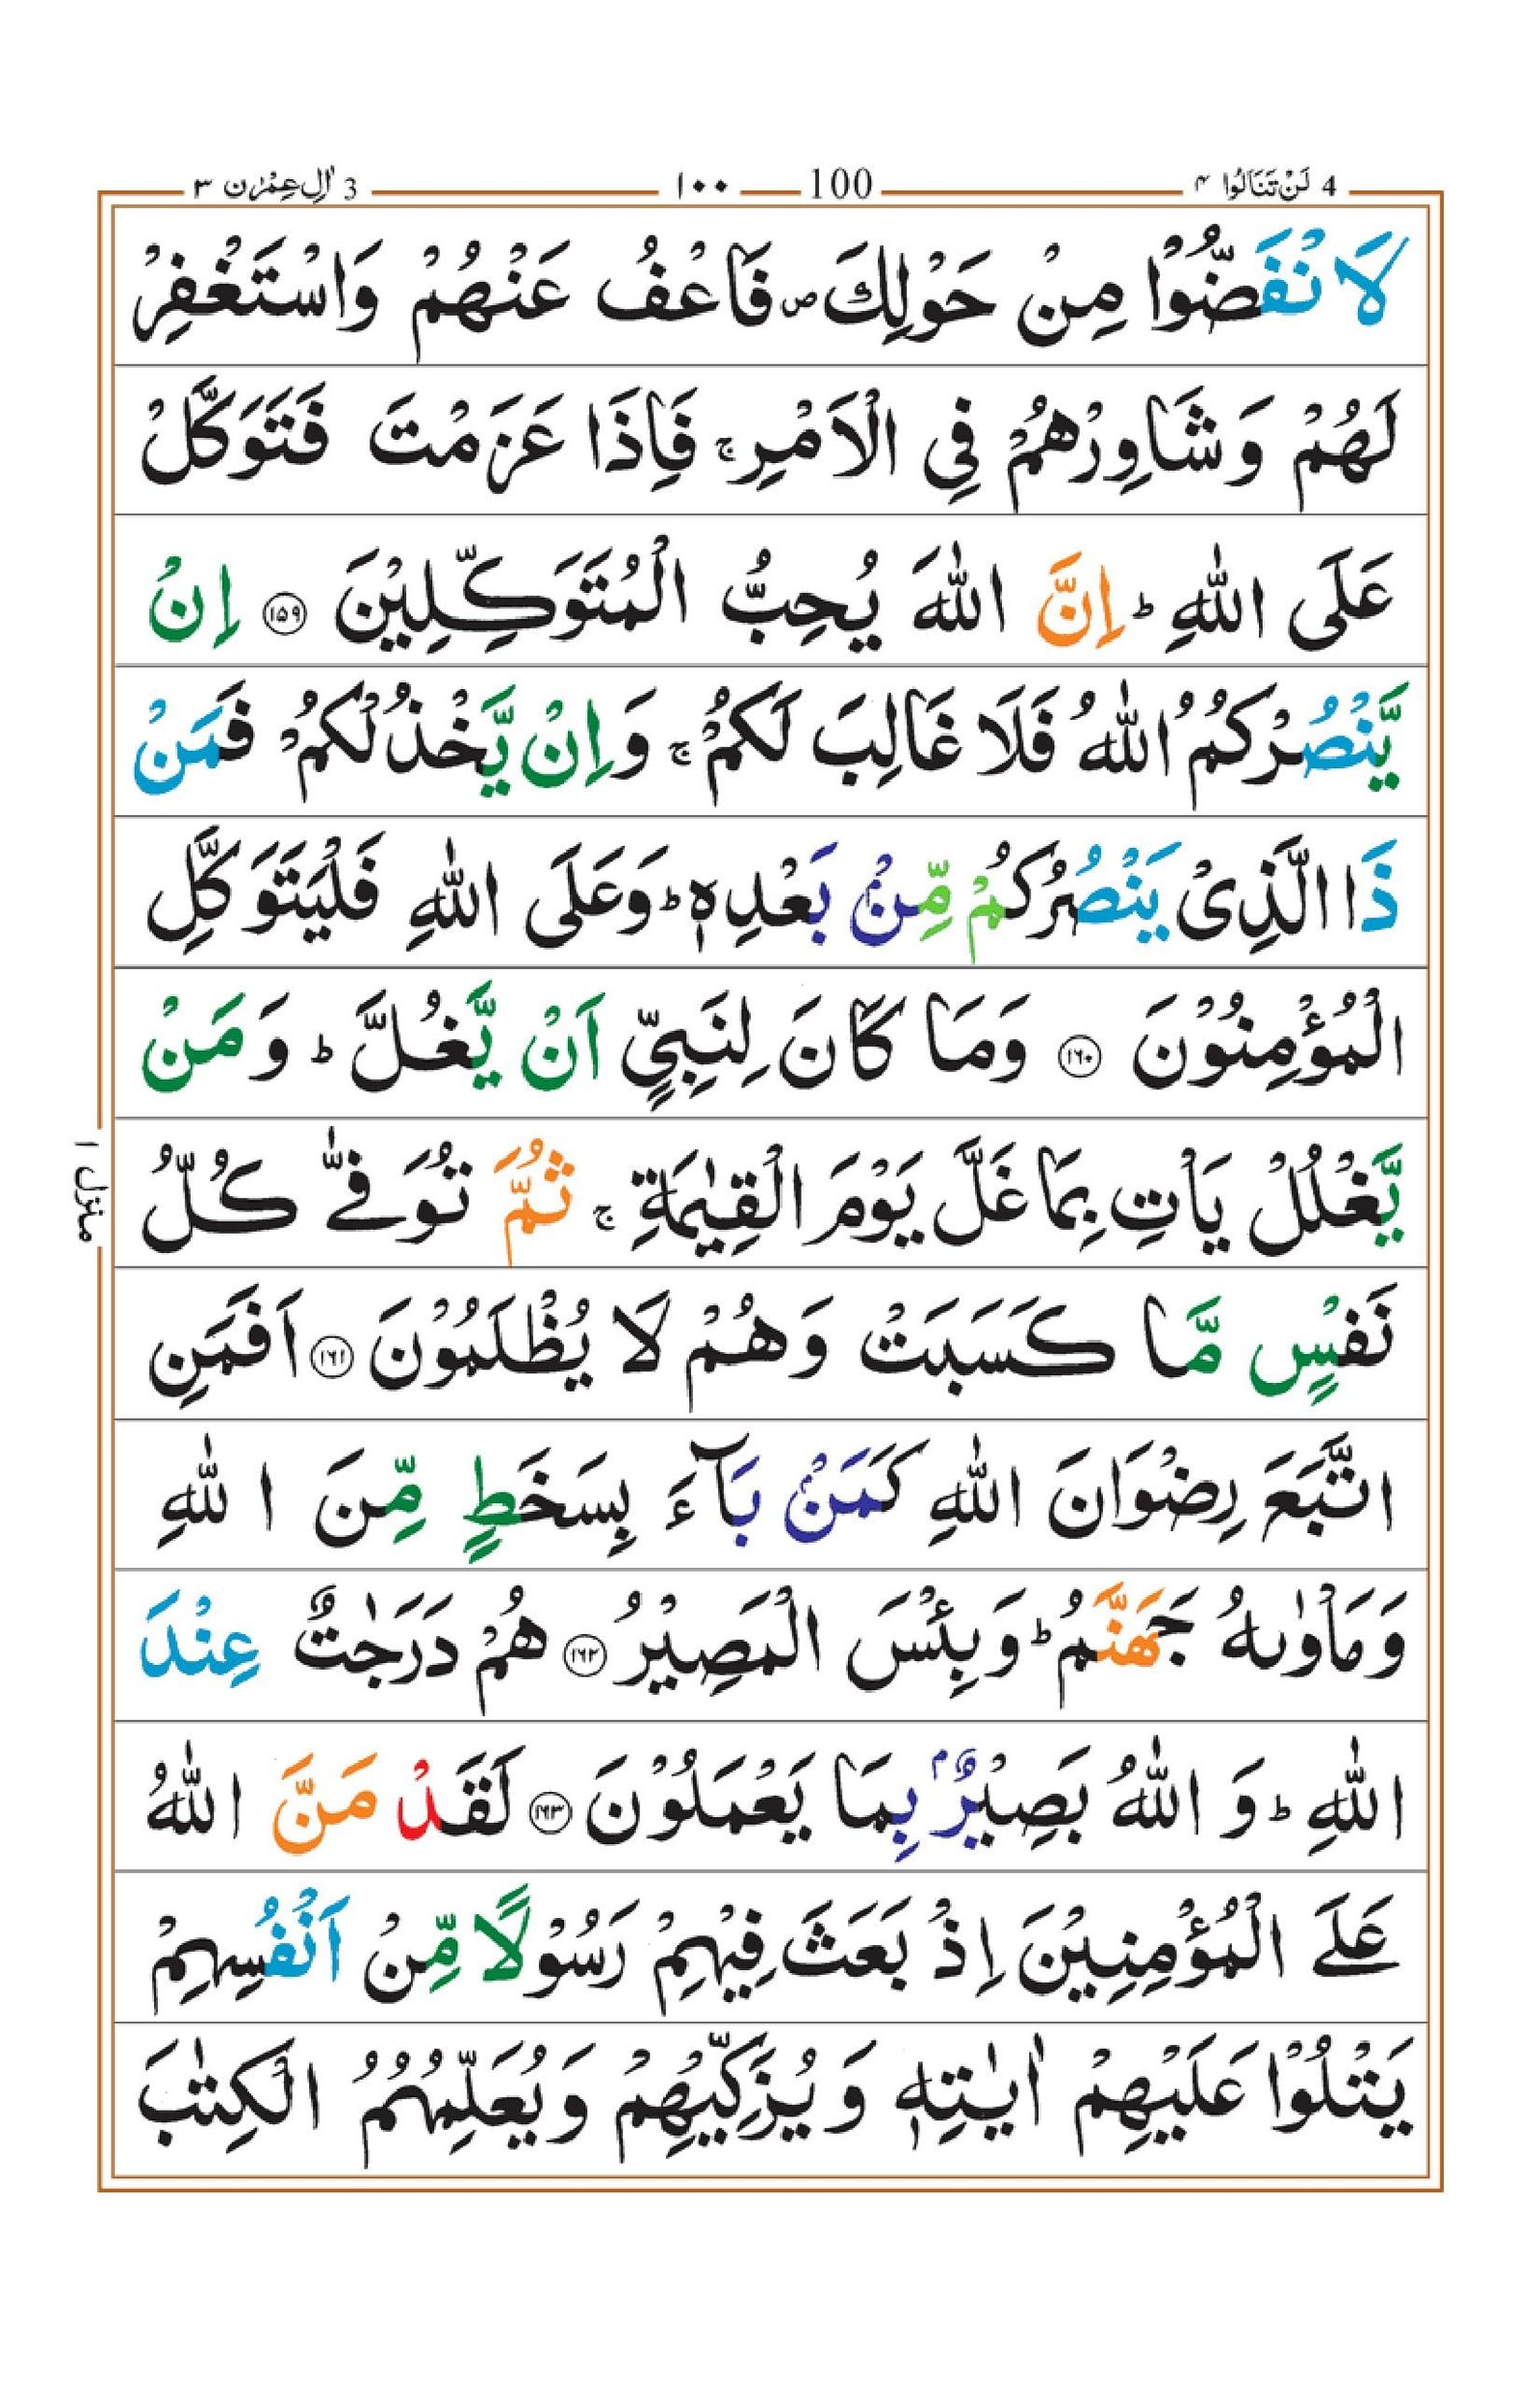 4 لَنْ تَنَالُوا ۴ 100 ۱۰۰ 3 اٰلِ عِمْرٰن ۳
لَا نْفَضُّوْا مِنْ حَوْلِكَ ۪ فَاعْفُ عَنْهُمْ وَاسْتَغْفِرْ
لَهُمْ وَشَاوِرْهُمْ فِي الْاَمْرِ ۚ فَاِذَا عَزَمْتَ فَتَوَكَّلْ
عَلَى اللّٰهِ ؕ اِنَّ اللّٰهَ يُحِبُّ الْمُتَوَكِّلِيْنَ ۝۱۵۹ اِنْ
يَّنْصُرْكُمُ اللّٰهُ فَلَا غَالِبَ لَكُمْ ۚ وَاِنْ يَّخْذُلْكُمْ فَمَنْ
ذَا الَّذِىْ يَنْصُرُكُمْ مِّنْۢ بَعْدِهٖ ؕ وَعَلَى اللّٰهِ فَلْيَتَوَكَّلِ
الْمُؤْمِنُوْنَ ۝۱۶۰ وَمَا كَانَ لِنَبِيٍّ اَنْ يَّغُلَّ ؕ وَمَنْ
يَّغْلُلْ يَاْتِ بِمَا غَلَّ يَوْمَ الْقِيٰمَةِ ۚ ثُمَّ تُوَفّٰى كُلُّ
نَفْسٍ مَّا كَسَبَتْ وَهُمْ لَا يُظْلَمُوْنَ ۝۱۶۱ اَفَمَنِ
اتَّبَعَ رِضْوَانَ اللّٰهِ كَمَنْۢ بَآءَ بِسَخَطٍ مِّنَ اللّٰهِ
وَمَاْوٰىهُ جَهَنَّمُ ؕ وَبِئْسَ الْمَصِيْرُ ۝۱۶۲ هُمْ دَرَجٰتٌ عِنْدَ
اللّٰهِ ؕ وَ اللّٰهُ بَصِيْرٌۢ بِمَا يَعْمَلُوْنَ ۝۱۶۳ لَقَدْ مَنَّ اللّٰهُ
عَلَى الْمُؤْمِنِيْنَ اِذْ بَعَثَ فِيْهِمْ رَسُوْلًا مِّنْ اَنْفُسِهِمْ
يَتْلُوْا عَلَيْهِمْ اٰيٰتِهٖ وَيُزَكِّيْهِمْ وَيُعَلِّمُهُمُ الْكِتٰبَ
منزل ۱